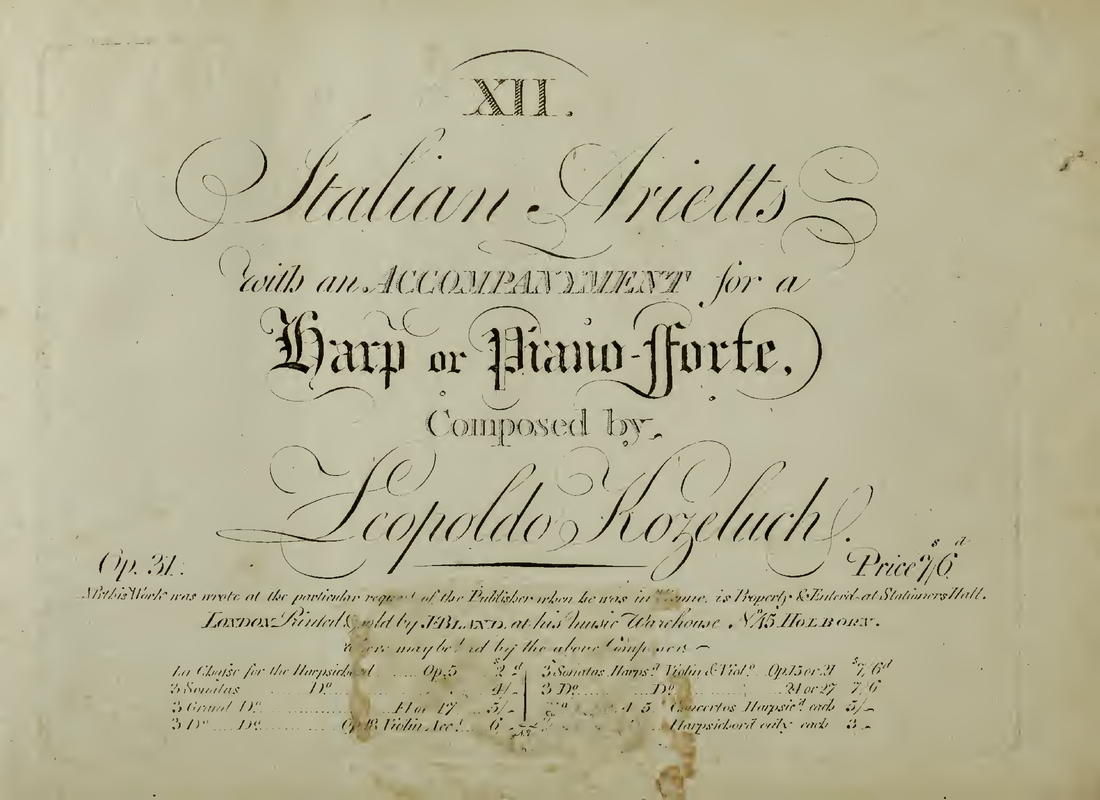 XII.
Italian Arietts
with an ACCOMPANYMENT for a
Harp or Piano-fforte,
Composed by
Leopoldo Kozeluch.
Op. 31. Price 7/6
s d
this Work was wrote at the particular of the Publisher when he was in is Property & Enterd at Stationers Hall.
LONDON Printed & sold by J. BLAND, at his Music Warehouse, No. 45 HOLBORN.
may be by the above
La Chasse for the Harpsichord Op. 5 2 3 Sonatas Harpsd. Violin & Viol. Op. 15 or 21 7/6d
3 Sonatas Do. 4/- 3 Do. Do. 24 or 27 7/6
3 Grand Do. 14 or 17 5/- 4 5 Concertos Harpsicd. each 5/-
3 Do. Do. Violin Acc. 6 Harpsichord only each 3